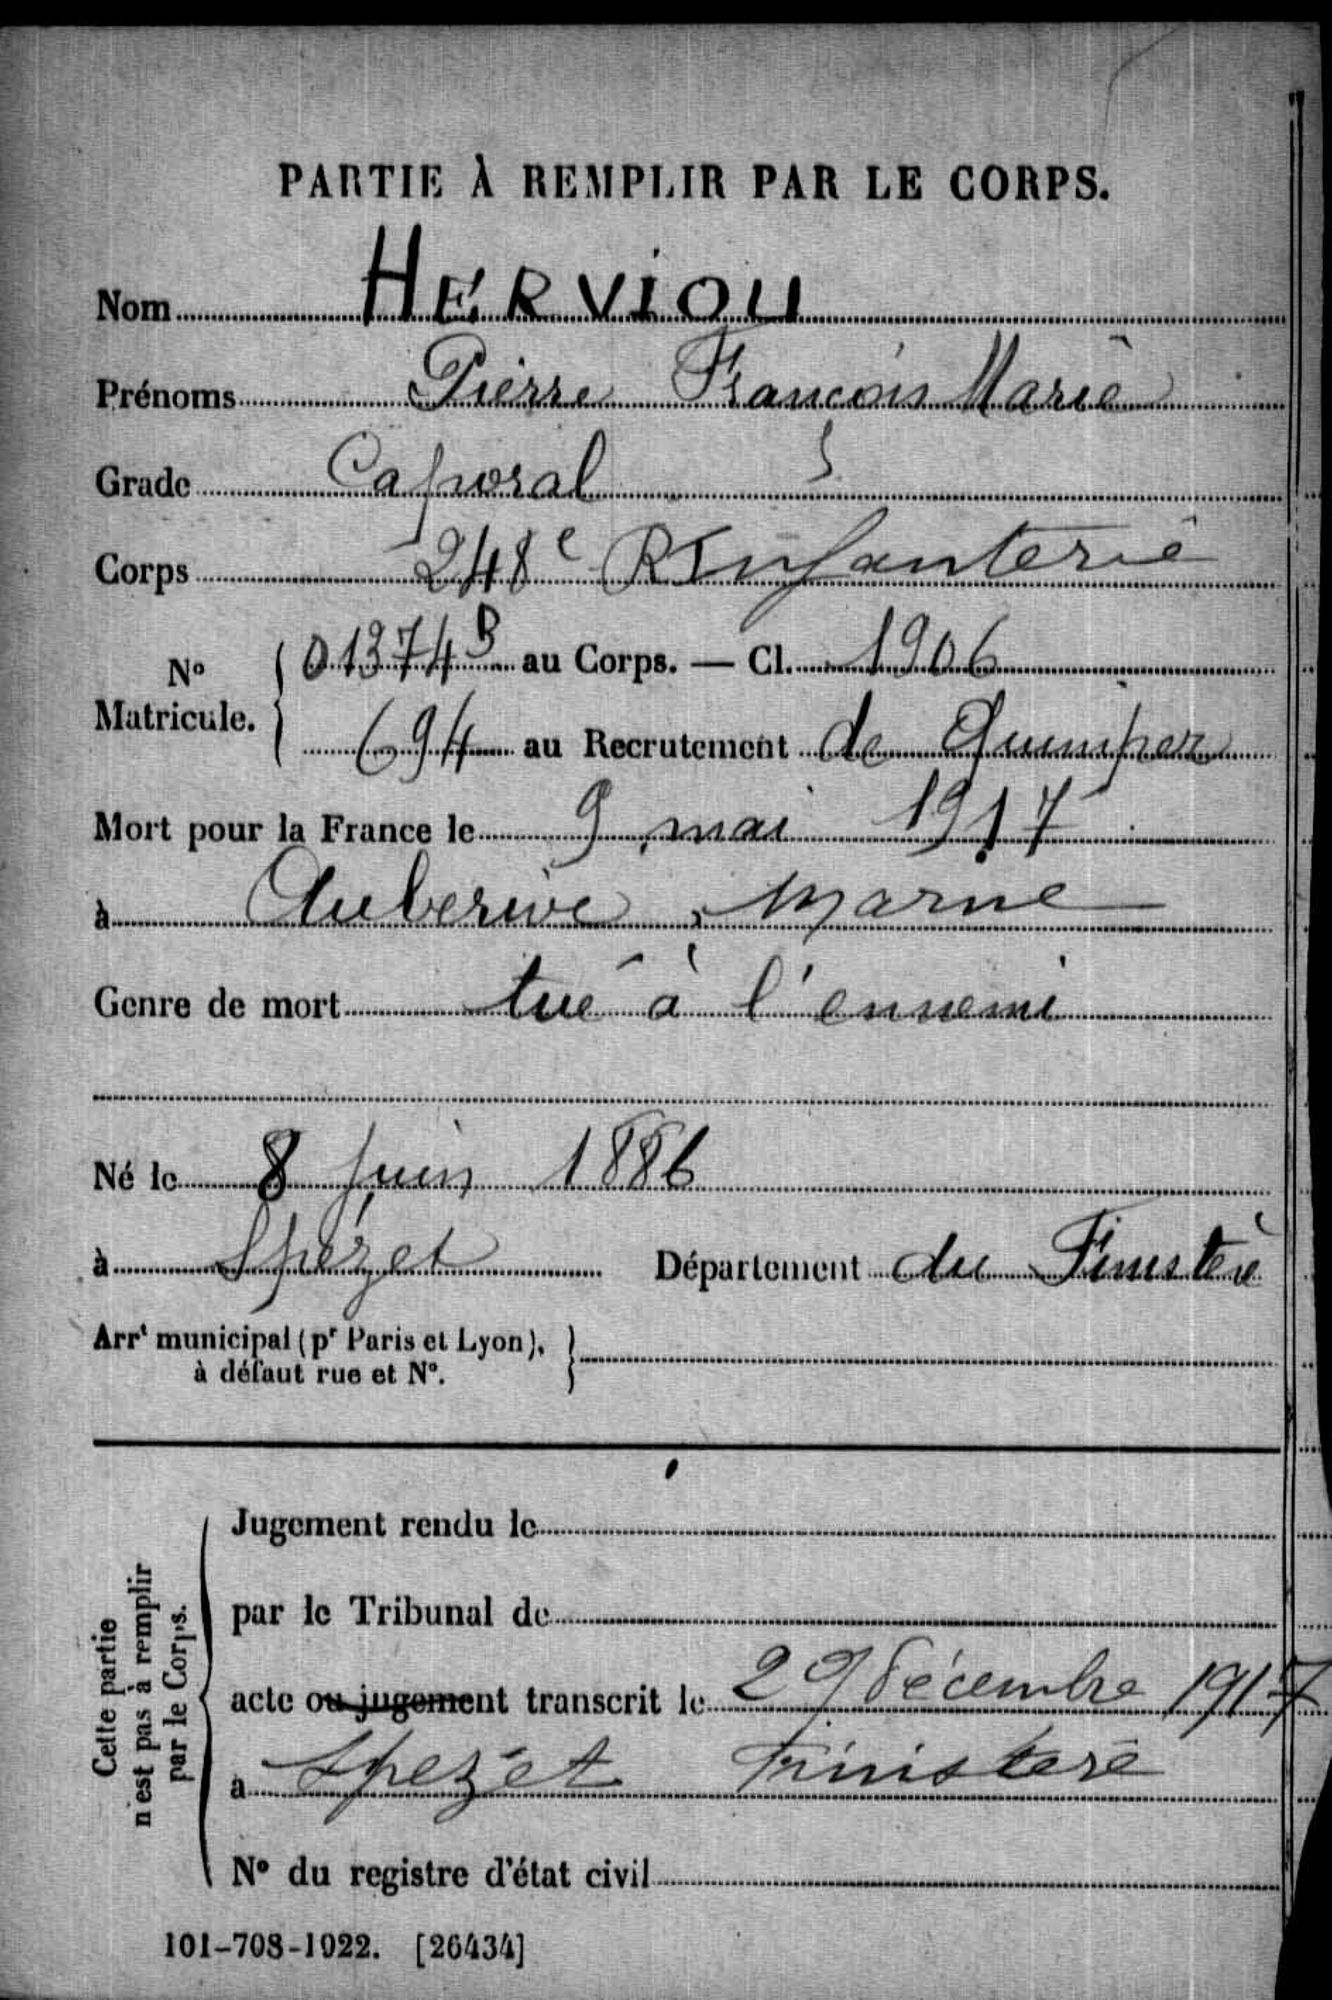 PARTIE À REMPLIR PAR LE CORPS.
Nom HERVIOU
Prénoms Pierre François Marie
Grade Caporal
Corps 248e R Infanterie
No Matricule. 01374 B au Corps. — Cl. 1906
694 au Recrutement de Quimper
Mort pour la France le 9 mai 1917
à Auberive, Marne
Genre de mort tué à l'ennemi
Né le 8 juin 1886
à Spézet Département du Finistère
Arrt municipal (pr Paris et Lyon),
à défaut rue et No.
Cette partie
n'est pas à remplir
par le Corps.
Jugement rendu le
par le Tribunal de
acte ou jugement transcrit le 29 décembre 1917
à Spézet Finistère
No du registre d'état civil
101-708-1922. [26434]